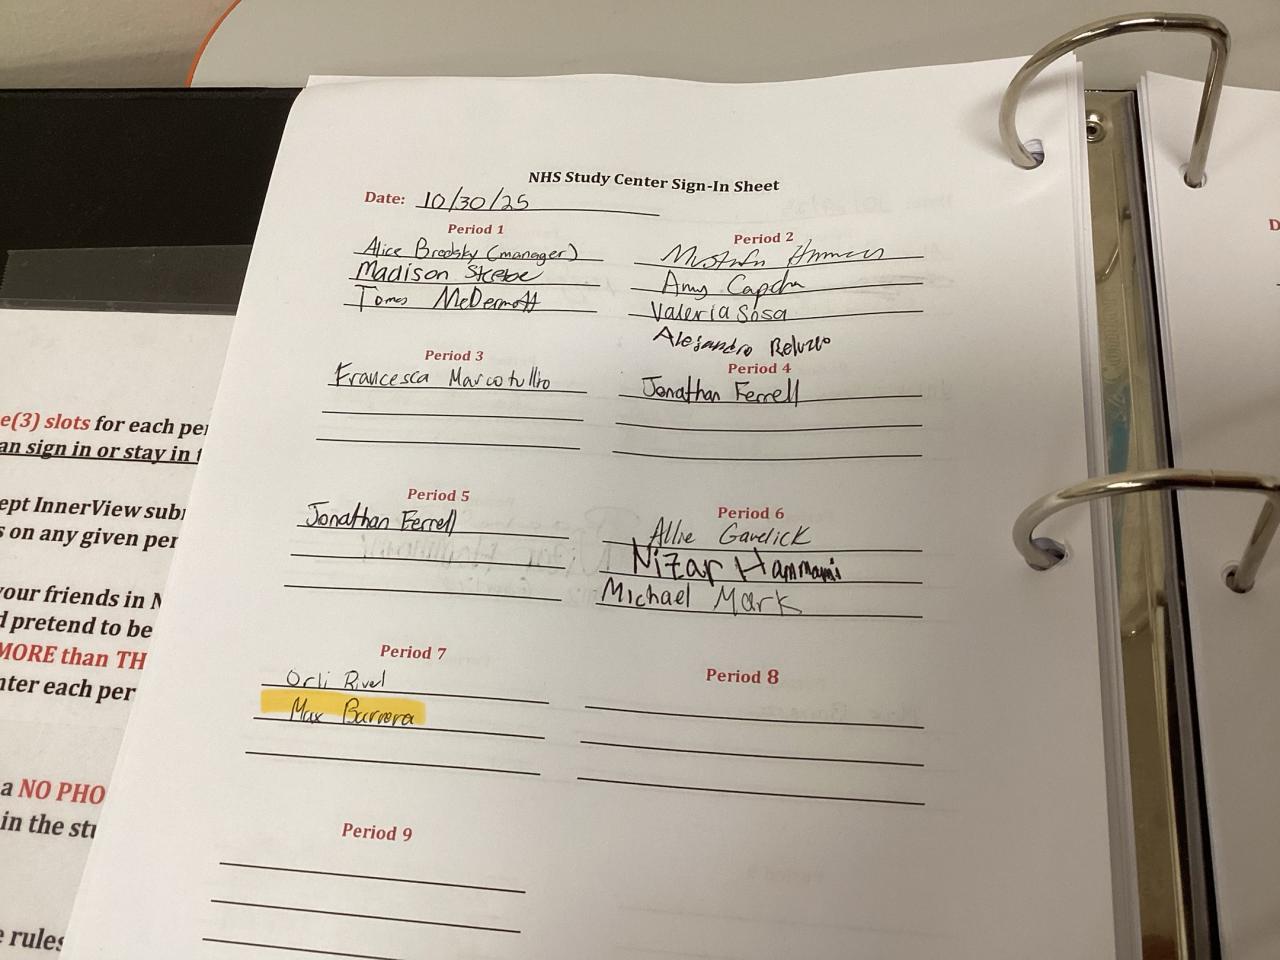 NHS Study Center Sign-In Sheet
Date: 10/30/25
Period 1
Alice Brodsky (manager)
Madison
McDermott
Period 2
Amy
Valeria Sosa
Alejandro
Period 3
Francesca Marcotullio
Period 4
Jonathan Ferrell
Period 5
Jonathan Ferrell
Period 6
Allie Gavelick
Nizar Hammami
Michael Mark
Period 7
Orli Rivel
Max Barrera
Period 8
Period 9
e(3) slots for each per
an sign in or stay in t
ept InnerView subm
s on any given per
your friends in N
d pretend to be
MORE than TH
nter each per
a NO PHO
in the stu
e rules
D